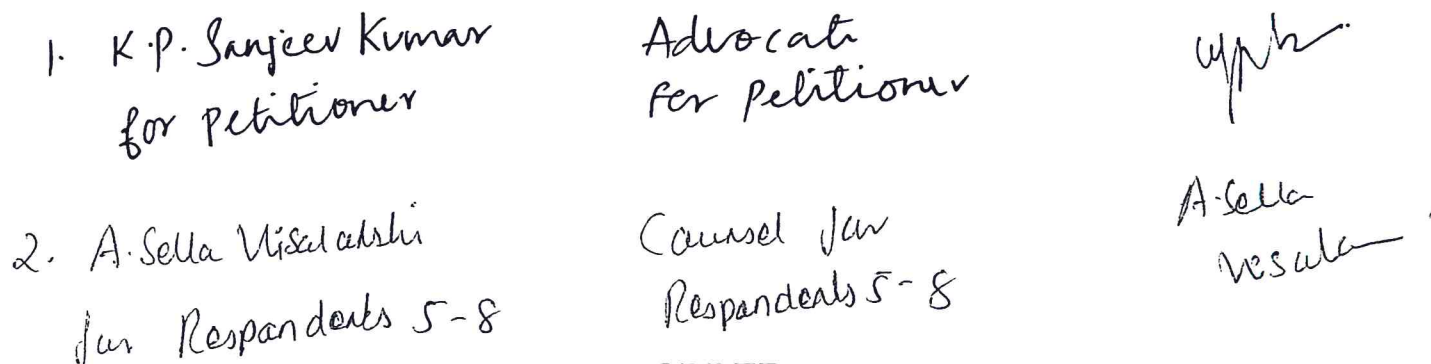 1. K.P. Sanjeev Kumar
for petitioner
Advocate
for Petitioner
2. A. Sella Visalakshi
for Respondents 5-8
Counsel for
Respondents 5-8
A. Sella